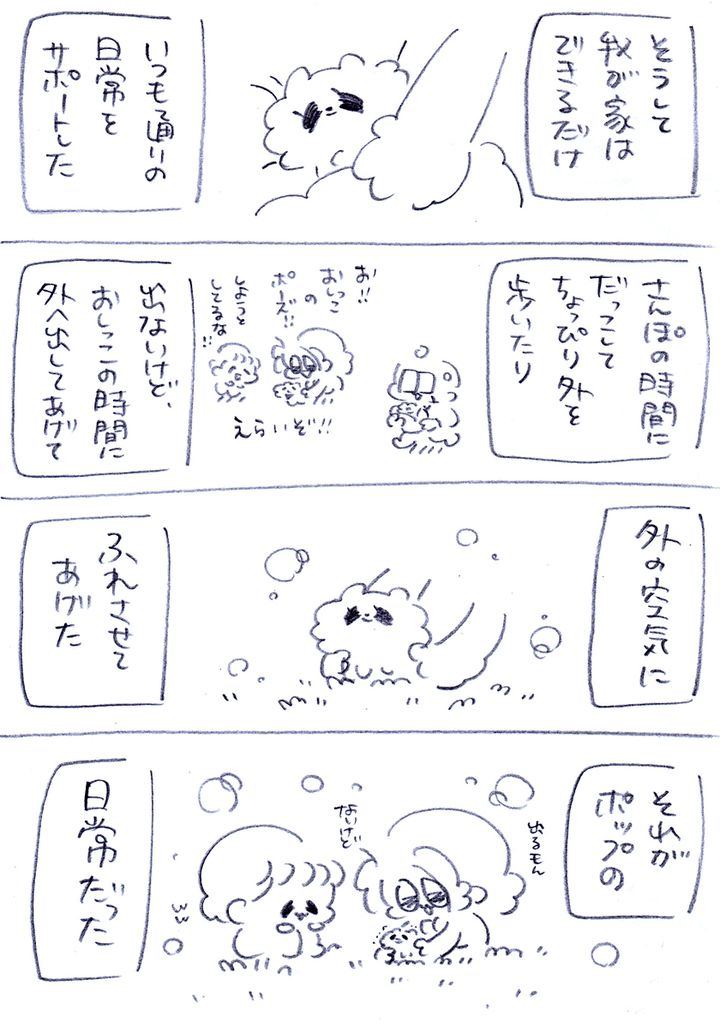 そうして
我が家は
できるだけ
いつも通りの
日常を
サポートした
さんぽの時間に
だっこして
ちょっぴり外を
歩いたり
お!!
おしっこ
の
ポーズ!!
しようと
してるな!!
えらいぞ!!
出ないけど、
おしっこの時間に
外へ出してあげて
外の空気に
ふれさせて
あげた
それが
ポップの
出るもん
ないけど
ww
日常だった